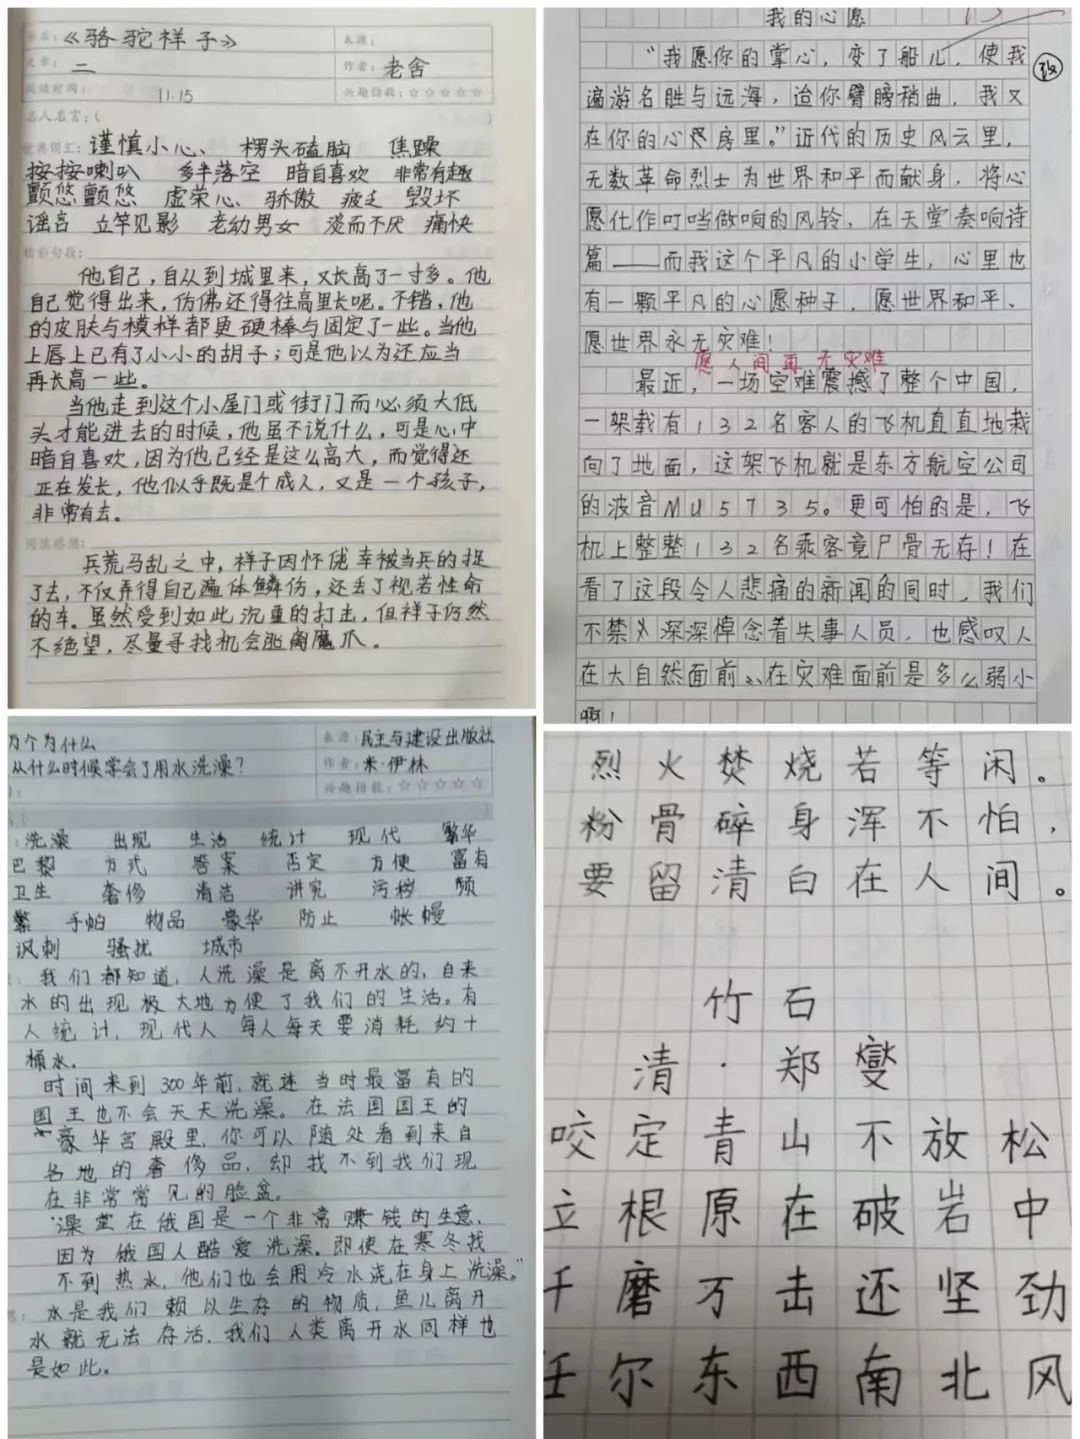 书名：《骆驼祥子》
来源：
文章：二
作者：老舍
阅读时间：11.15
兴趣指数：☆☆☆☆☆
名人名言：(
优美词汇：谨慎小心、 楞头磕脑 焦躁
按按喇叭 多半落空 暗自喜欢 非常有趣
颤悠颤悠 虚荣心、 骄傲 疲走 毁坏
谣言 立竿见影 老幼男女 淡而不厌 痛快
精彩句段：
他自己，自从到城里来，又长高了一寸多。他
自己觉得出来，仿佛还得往高里长呢。不错，他
的皮肤与模样都更硬棒与固定了一些。当他
上唇上已有了小小的胡子；可是他以为还应当
再长高一些。
当他走到这个小屋门或街门而必须大低
头才能进去的时候，他虽不说什么，可是心中
暗自喜欢，因为他已经是这么高大，而觉得还
正在发长，他似乎既是个成人，又是一个孩子，
非常有去。
阅读感想：
兵荒马乱之中，祥子因怀侥幸被当兵的捉
了去，不仅弄得自己遍体鳞伤，还丢了视若性命
的车。虽然受到如此沉重的打击，但祥子仍然
不绝望，尽量寻找机会逃离魔爪。
我的心愿
“我愿你的掌心，变了船儿，使我
遍游名胜与远海，迨你臂膀稍曲，我又
在你的心房里。”近代的历史风云里，
无数革命烈士为世界和平而献身，将心
愿化作叮当做响的风铃，在天堂奏响诗
篇——而我这个平凡的小学生，心里也
有一颗平凡的心愿种子，愿世界和平、
愿世界永无灾难！
愿人间再无灾难
最近，一场空难震撼了整个中国，
一架载有132名客人的飞机直直地栽
向了地面，这架飞机就是东方航空公司
的波音MU5735。更可怕的是，飞
机上整整132名乘客竟尸骨无存！在
看了这段令人悲痛的新闻的同时，我们
不禁深深悼念着失事人员，也感叹人
在大自然面前、在灾难面前是多么弱小
啊！
万个为什么
来源：民主与建设出版社
从什么时候学会了用水洗澡？
作者：米·伊林
兴趣指数：☆☆☆☆☆
：洗澡 出现 生活 统计 现代 繁华
巴黎 方式 答案 否定 方便 富有
卫生 奢侈 清洁 讲究 污秽 频
繁 手帕 物品 豪华 防止 帐幔
讽刺 骚扰 城市
：我们都知道，人洗澡是离不开水的，自来
水的出现极大地方便了我们的生活。有
人统计，现代人每人每天要消耗约十
桶水。
时间来到300年前，就连当时最富有的
国王也不会天天洗澡。在法国国王的
豪华宫殿里，你可以随处看到来自
各地的奢侈品，却找不到我们现
在非常常见的脸盆。
“澡堂在俄国是一个非常赚钱的生意，
因为俄国人酷爱洗澡。即使在寒冬找
不到热水，他们也会用冷水浇在身上洗澡。”
：水是我们赖以生存的物质，鱼儿离开
水就无法存活，我们人类离开水同样也
是如此。
烈火焚烧若等闲。
粉骨碎身浑不怕，
要留清白在人间。
竹石
清·郑燮
咬定青山不放松
立根原在破岩中
千磨万击还坚劲
任尔东西南北风